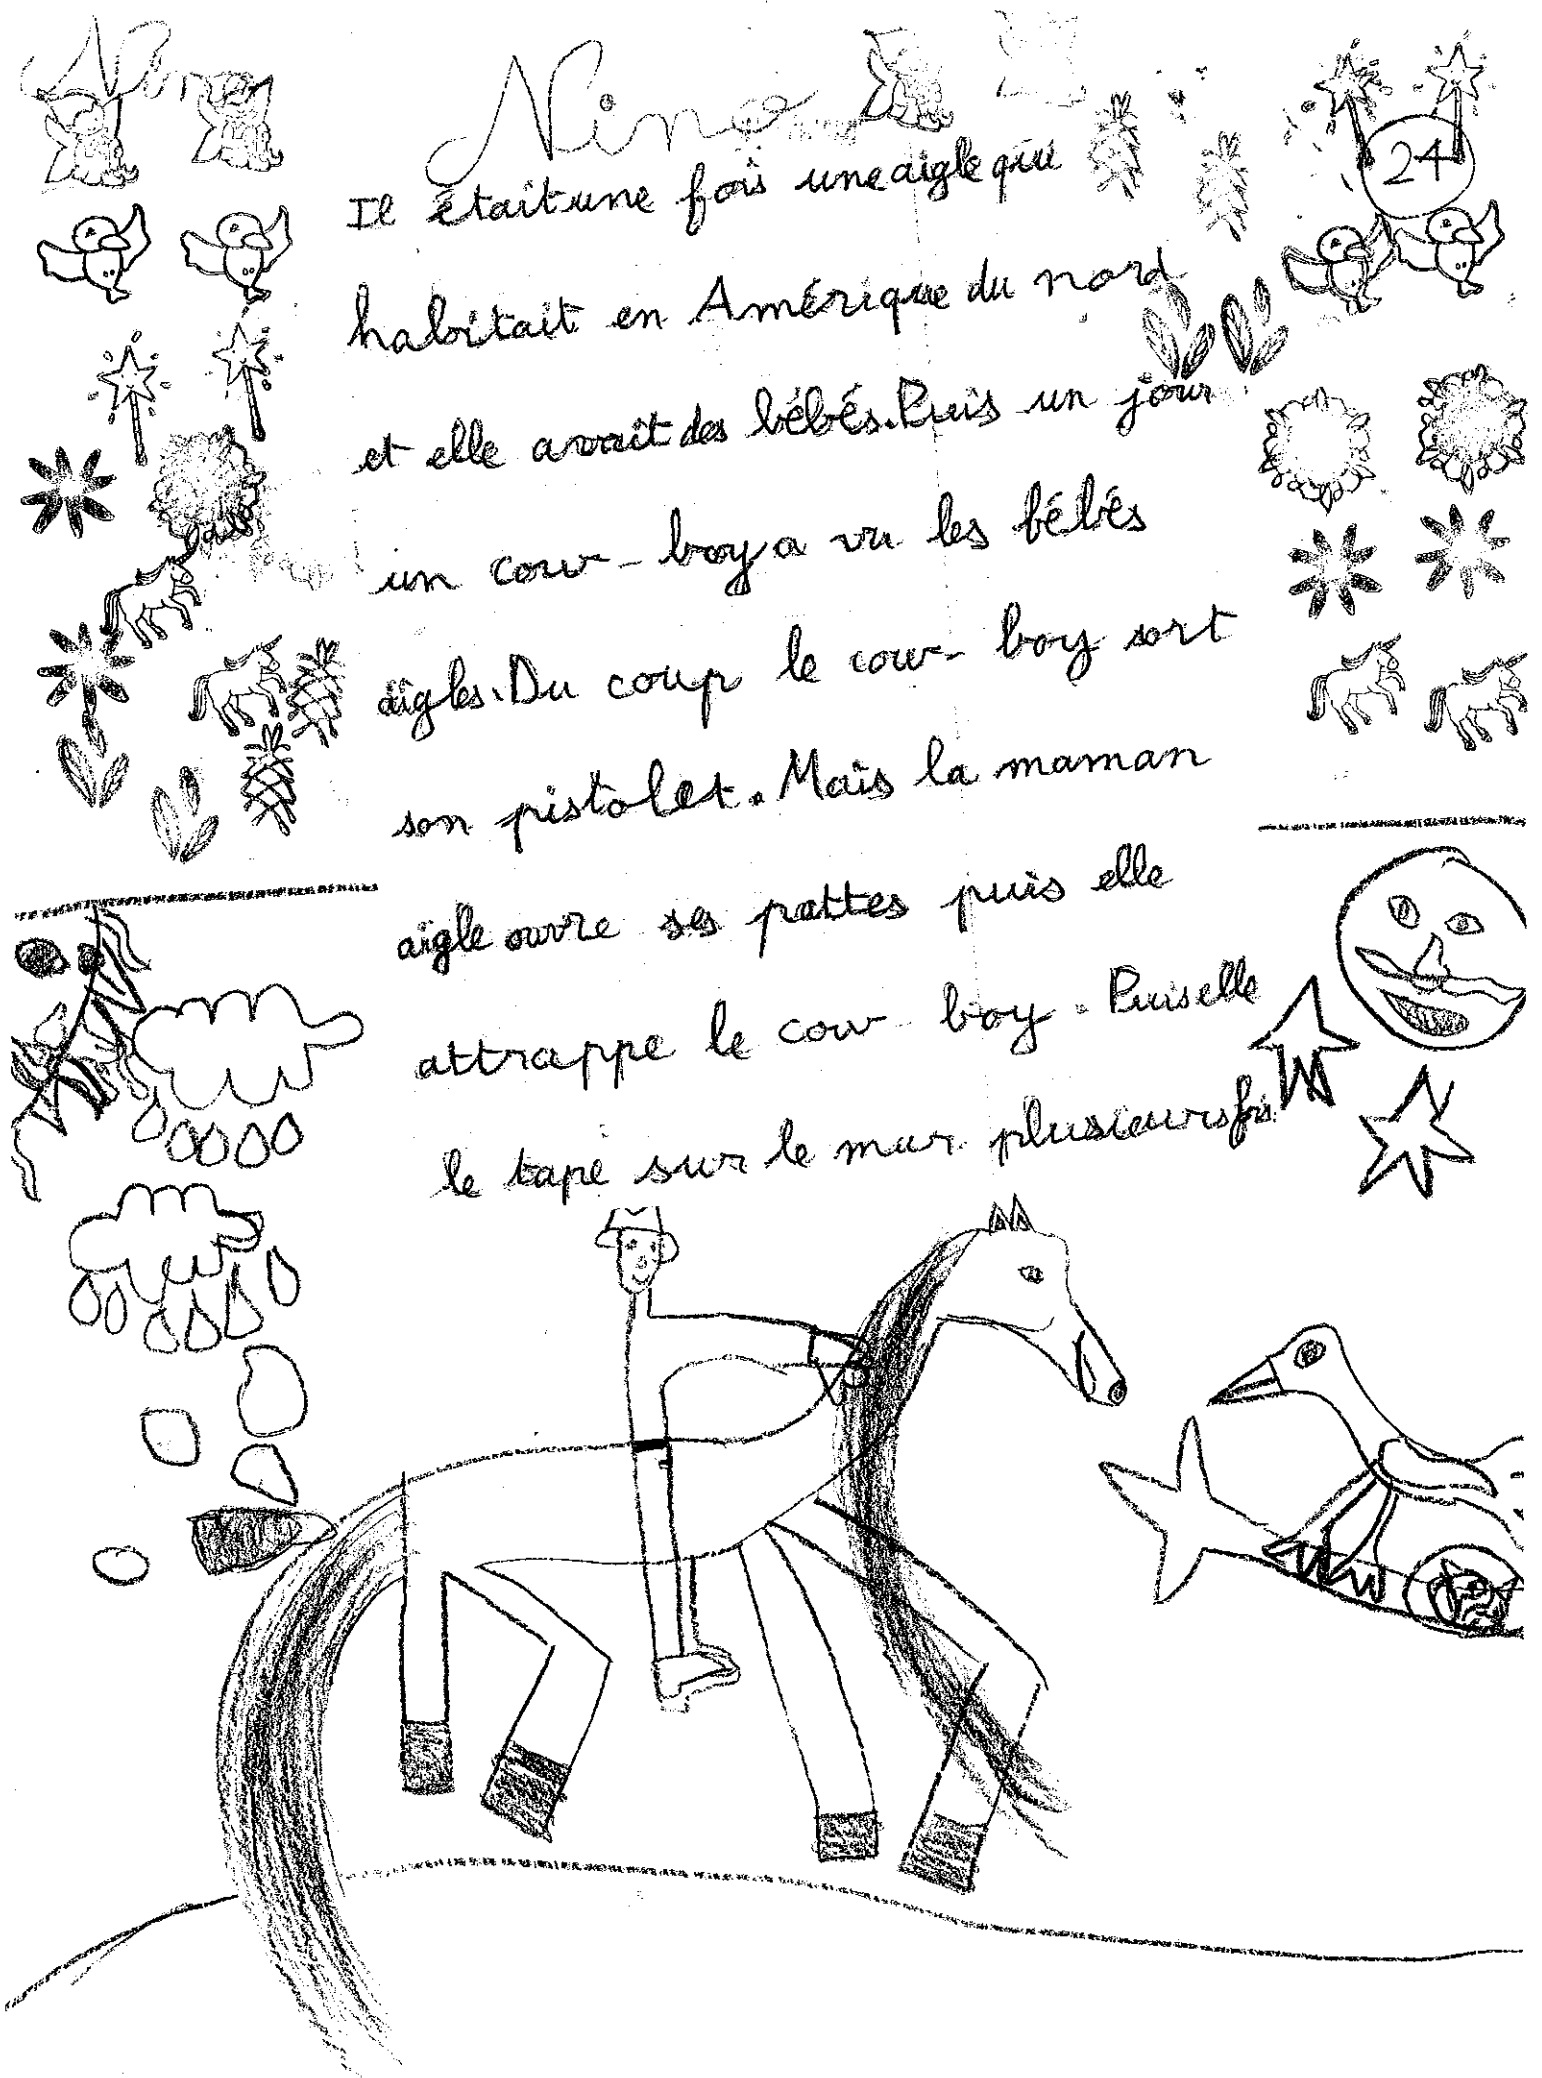 Nino
Nino
24
Il était une fois une aigle qui
habitait en Amérique du nord
et elle avait des bébés. Puis un jour
un cow-boy a vu les bébés
aigles. Du coup le cow-boy sort
son pistolet. Mais la maman
aigle ouvre ses pattes puis elle
attrappe le cow-boy. Puis elle
le tape sur le mur plusieurs fois.